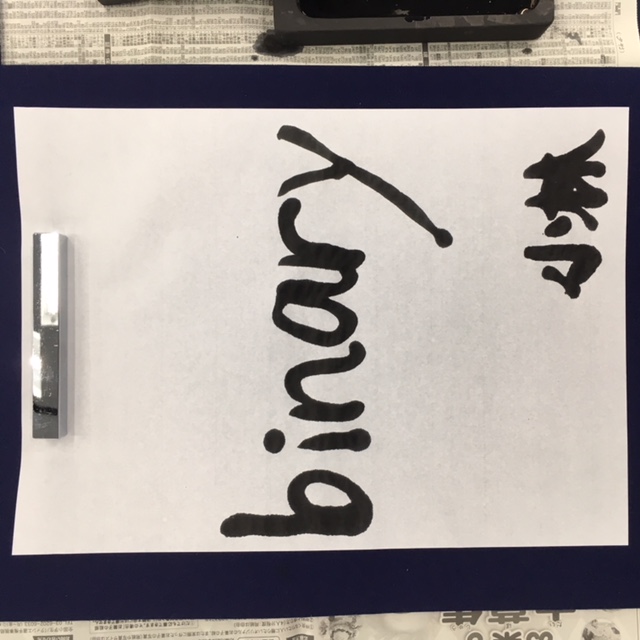 binary
小林